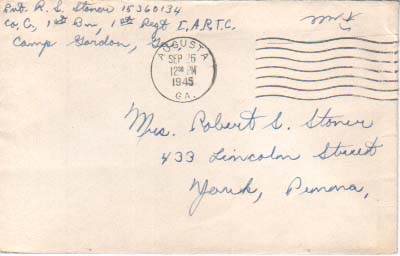 Pvt. R. S. Stoner 15360134
Co, C, 1st Bn, 1st Regt I.A.R.T.C.
Camp Gordon, Ga,
AUGUSTA
SEP 26
12 PM
1945
GA.
Mrs. Robert S. Stoner
433 Lincoln Street
York, Penna,